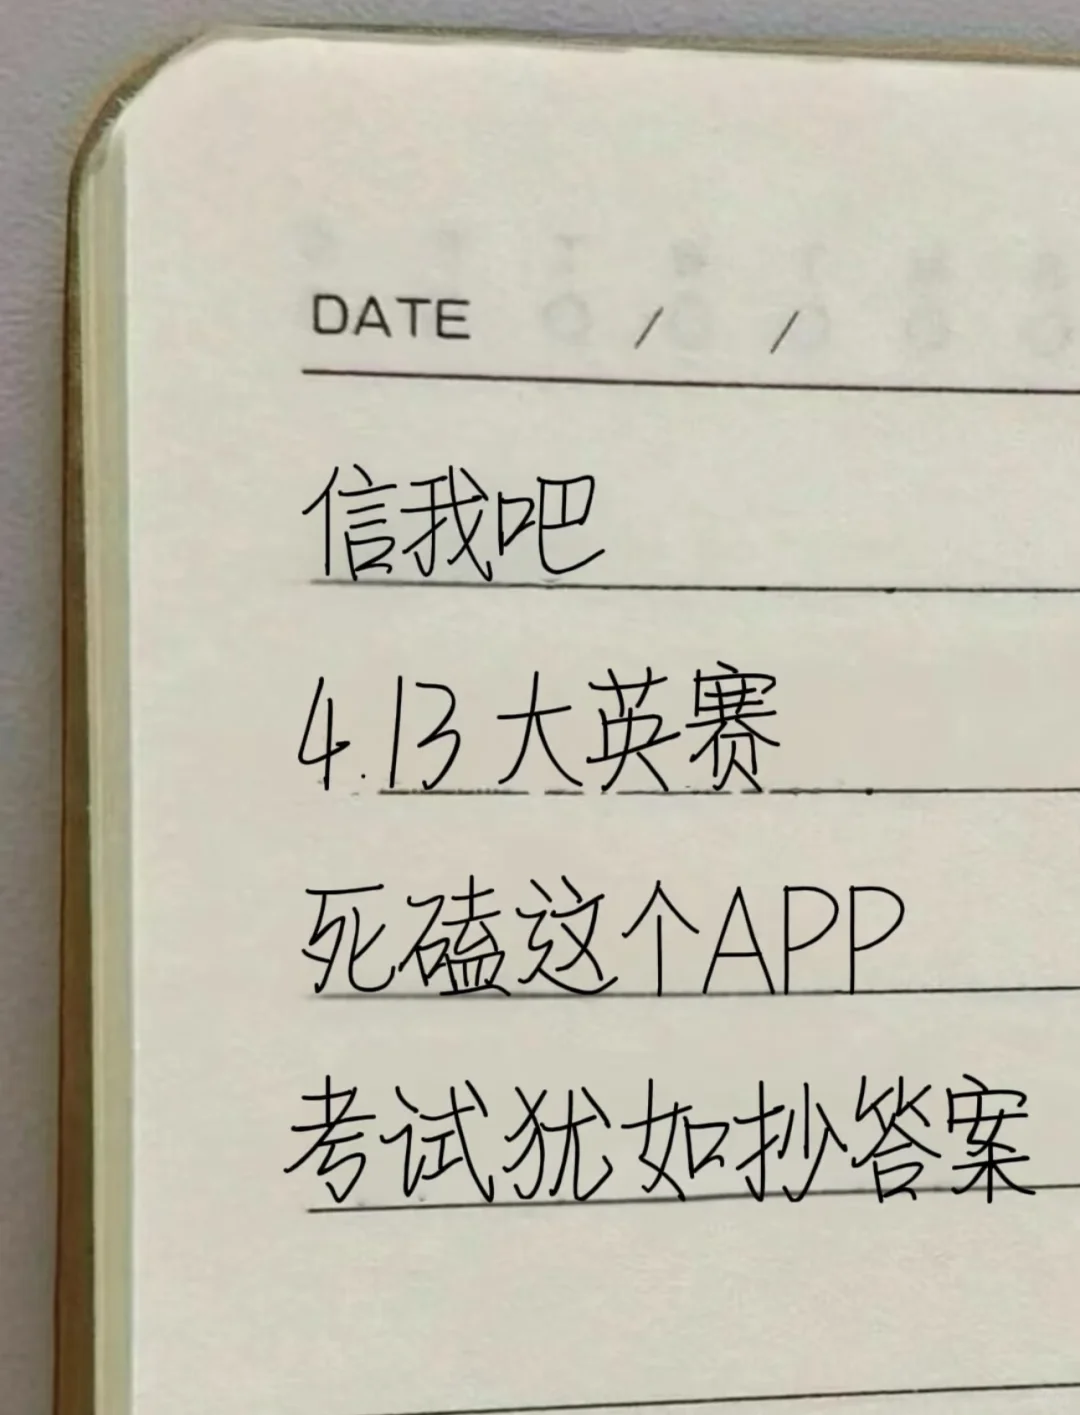 DATE / /
信我吧
4.13大英赛
死磕这个APP
考试犹如抄答案